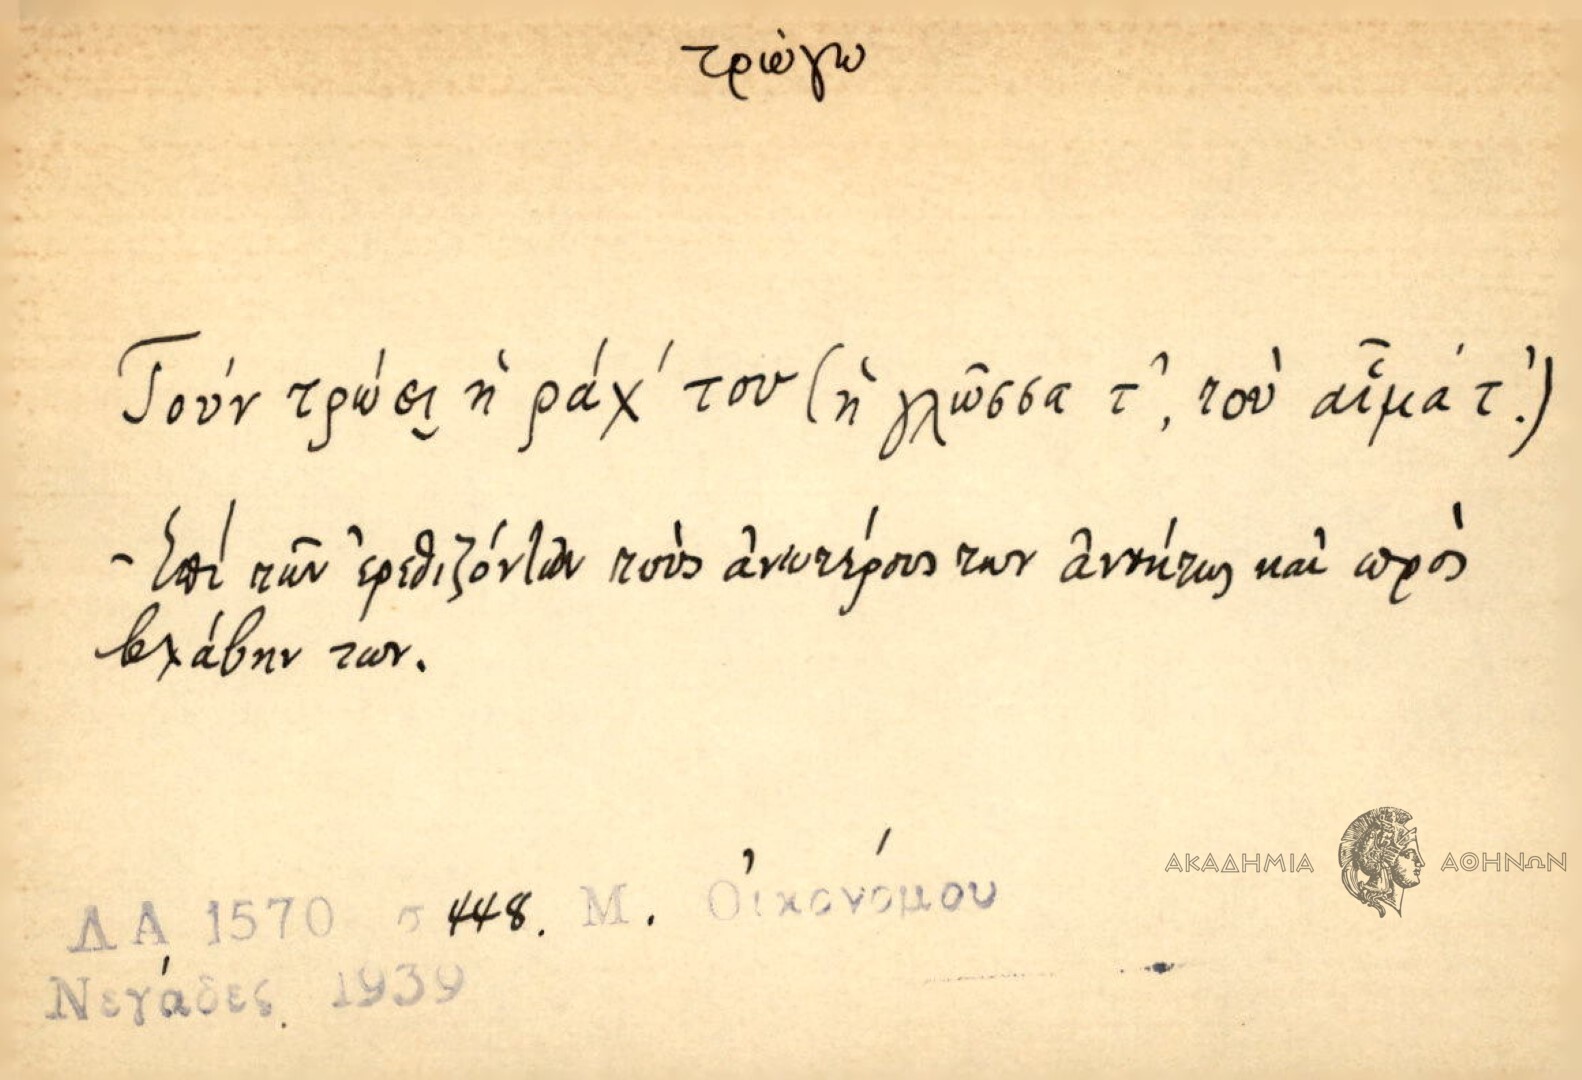 τρώγω
Τούν τρώει ἡ ράχ' του (ἡ γλῶσσα τ', τοὺ αἷμά τ'.)
- Ἐπί τῶν ἐρεθιζόντων τοὺς ἀνωτέρους των ἀνοήτως καὶ πρὸς
βλάβην των.
ΑΚΑΔΗΜΙΑ ΑΘΗΝΩΝ
ΛΑ 1570 σ 448. Μ. Οἰκονόμου
Νεγάδες 1939